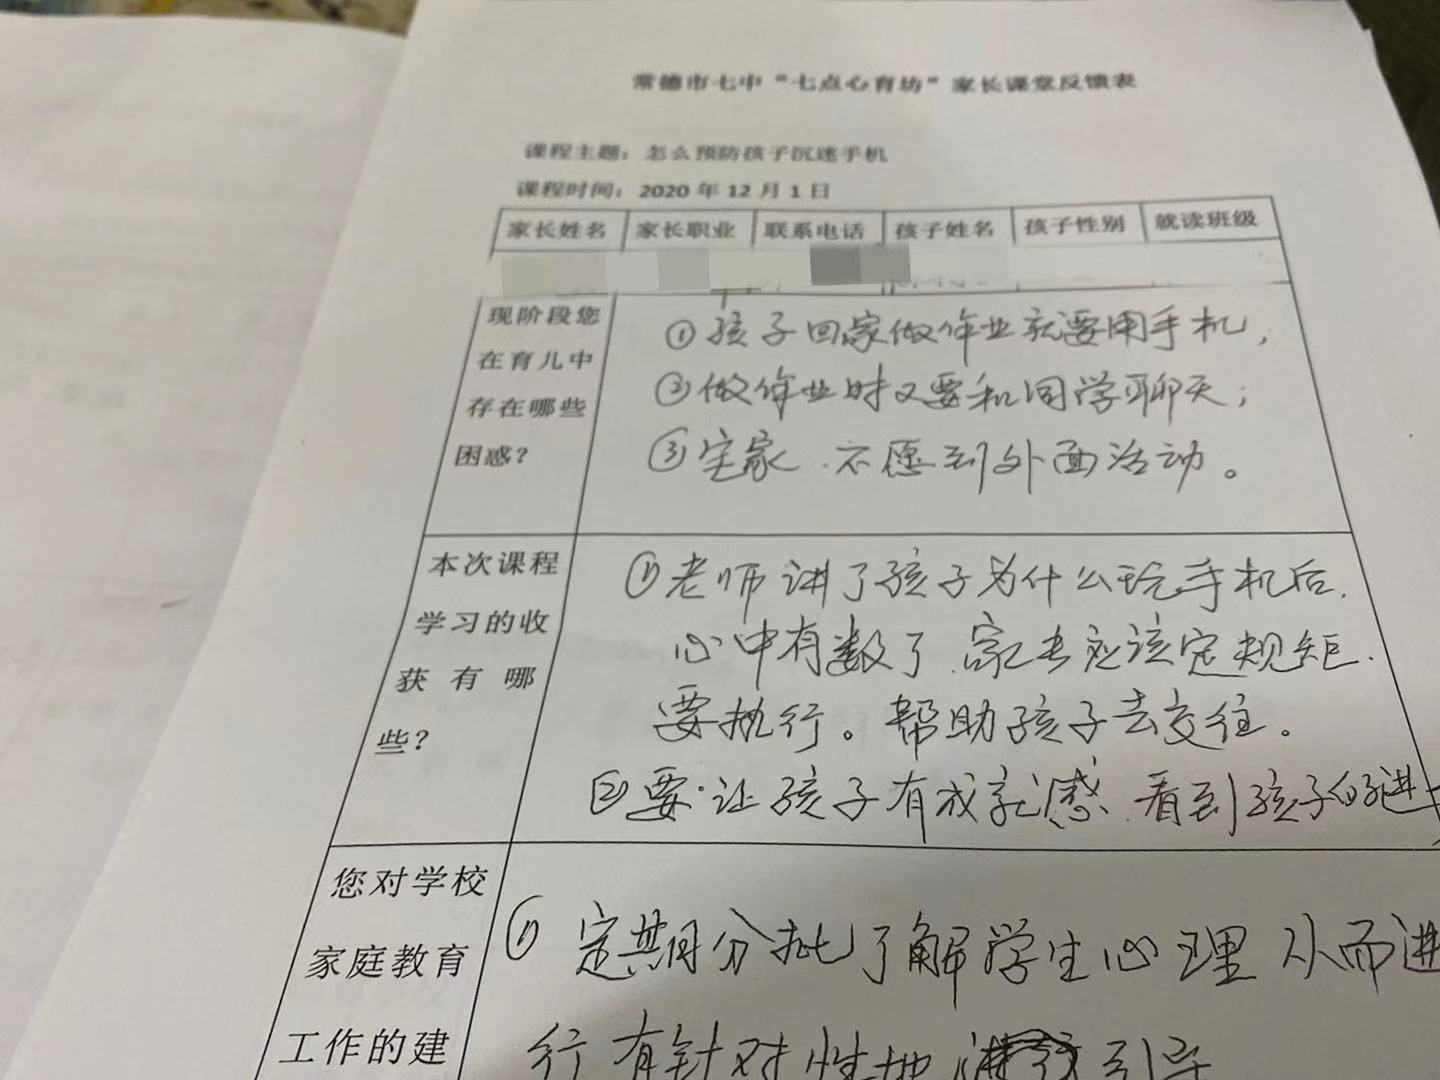 常德市七中“七点心育坊”家长课堂反馈表
课程主题：怎么预防孩子沉迷手机
课程时间：2020年12月1日
家长姓名 家长职业 联系电话 孩子姓名 孩子性别 就读班级
现阶段您
在育儿中
存在哪些
困惑？
①孩子回家做作业就要用手机；
②做作业时又要和同学聊天；
③宅家.不愿到外面活动。
本次课程
学习的收
获有哪
些？
①老师讲了孩子为什么玩手机后.
心中有数了.家长应该定规矩.
要执行。帮助孩子去交往。
②要让孩子有成就感.看到孩子的进
您对学校
家庭教育
工作的建
① 定期分批了解学生心理 从而进
行有针对性地 引导